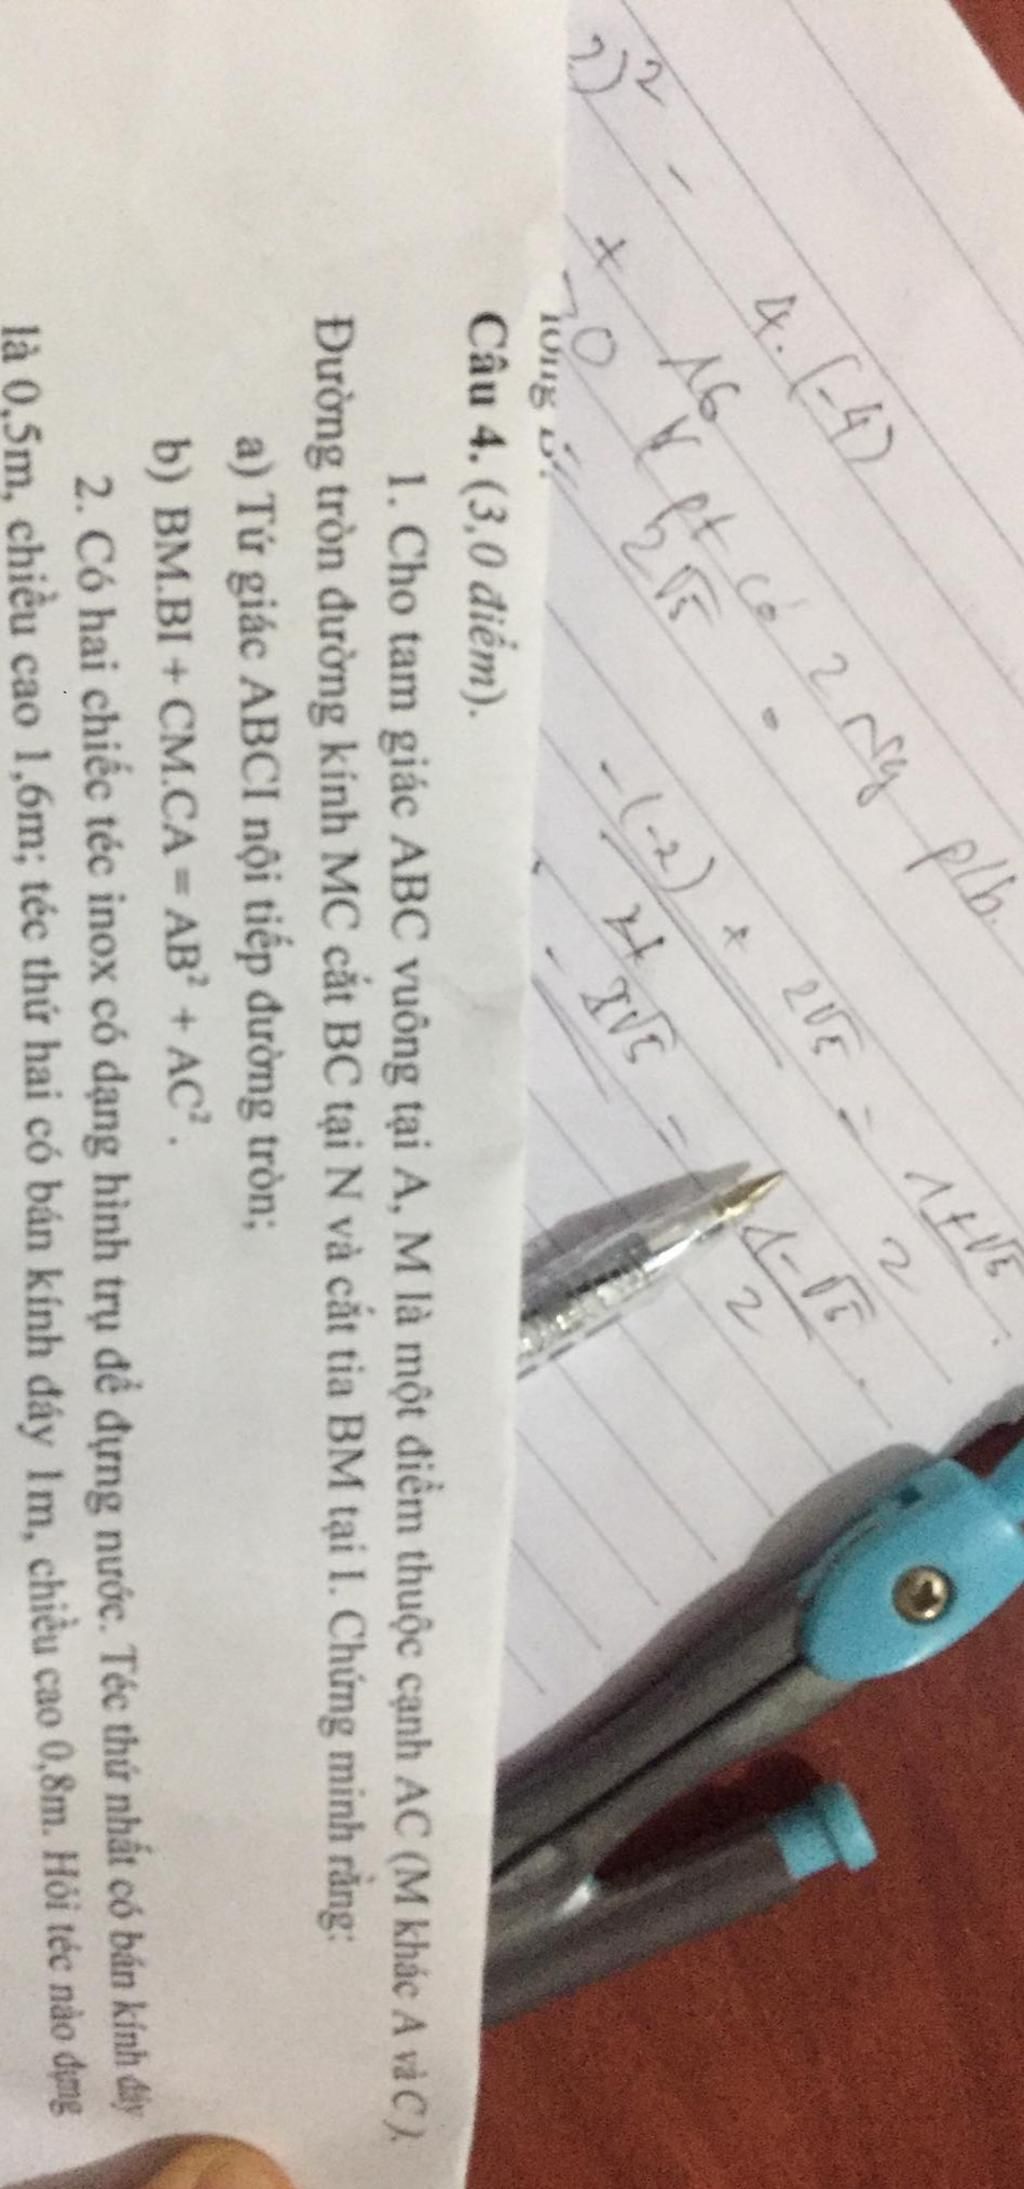 2)² - 4.(-4)
+ 16
> 0 pt có 2 ng p/b.
2√5
-(-2) + 2√5 = 1+√5
2
2√5 = 1-√5
2
Câu 4. (3,0 điểm).
1. Cho tam giác ABC vuông tại A, M là một điểm thuộc cạnh AC (M khác A và C).
Đường tròn đường kính MC cắt BC tại N và cắt tia BM tại I. Chứng minh rằng:
a) Tứ giác ABCI nội tiếp đường tròn;
b) BM.BI + CM.CA = AB² + AC².
2. Có hai chiếc téc inox có dạng hình trụ để đựng nước. Téc thứ nhất có bán kính đáy
là 0,5m, chiều cao 1,6m; téc thứ hai có bán kính đáy 1m, chiều cao 0,8m. Hỏi téc nào đựng